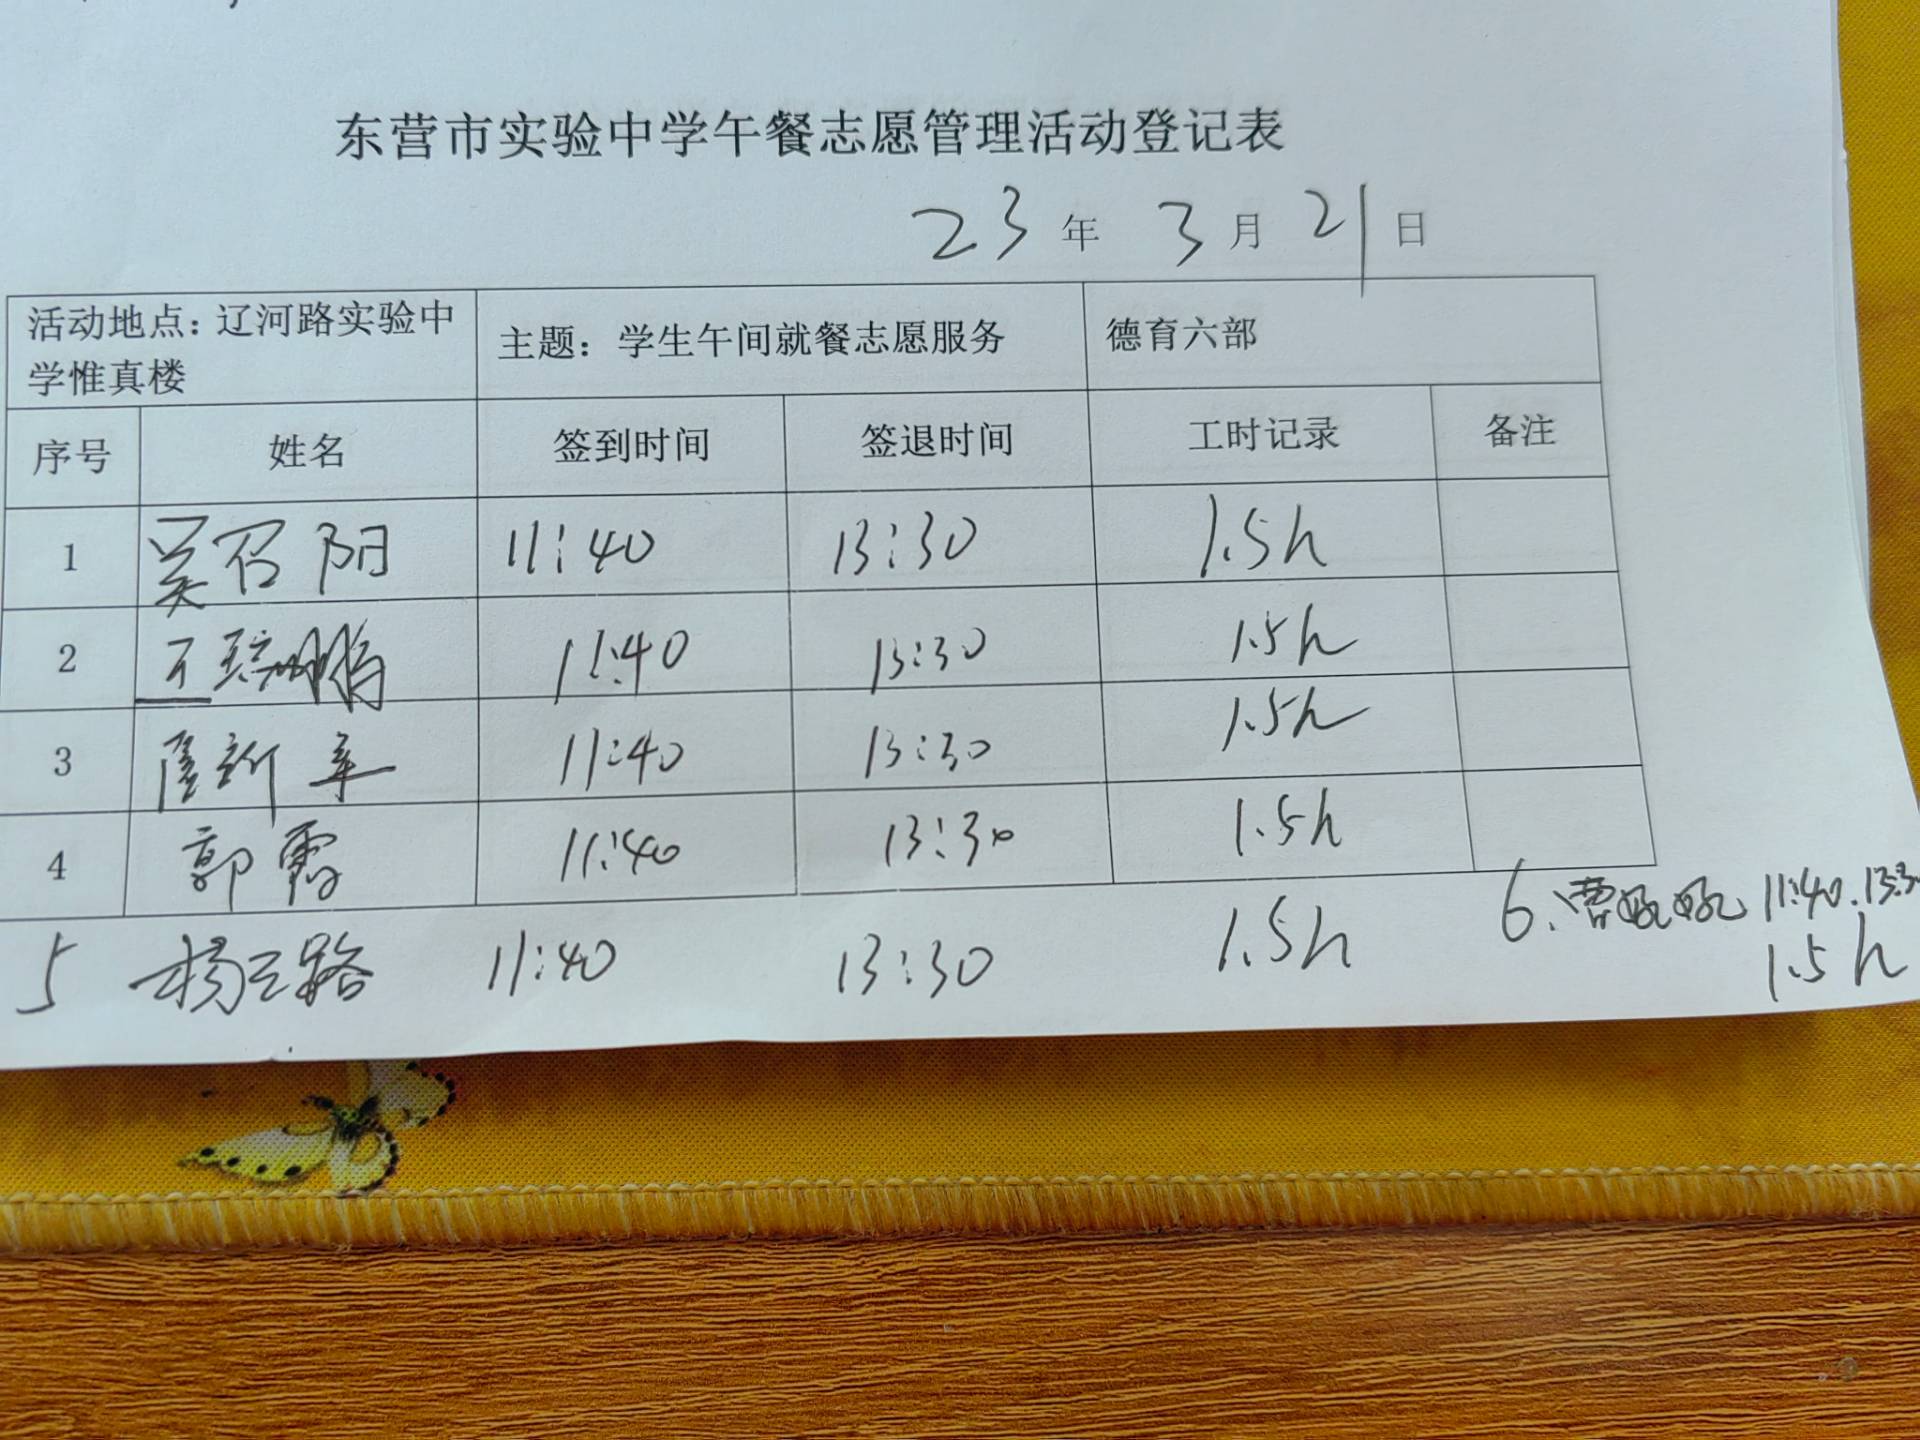 东营市实验中学午餐志愿管理活动登记表
23年3月21日
活动地点：辽河路实验中学惟真楼 主题：学生午间就餐志愿服务 德育六部
序号 姓名 签到时间 签退时间 工时记录 备注
1 吴召阳 11:40 13:30 1.5h
2 王 11:40 13:30 1.5h
3 11:40 13:30 1.5h
4 郭霞 11:40 13:30 1.5h
5 杨三路 11:40 13:30 1.5h
6.曹 11:40.13:30
1.5h